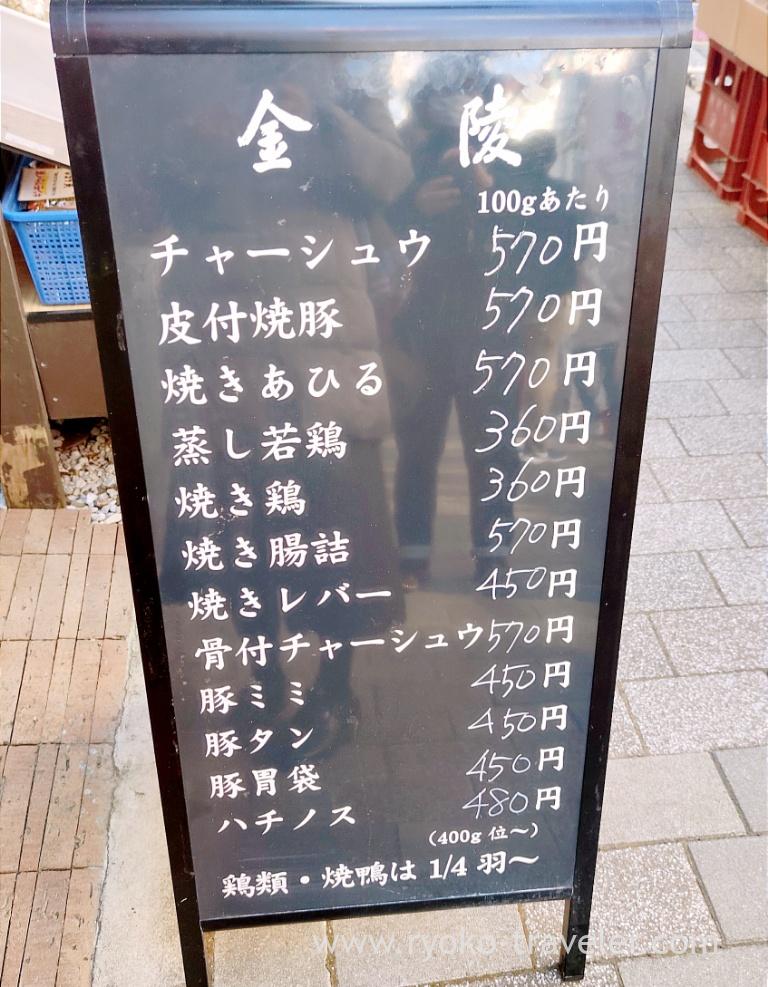 金陵
100gあたり
チャーシュウ 570円
皮付焼豚 570円
焼きあひる 570円
蒸し若鶏 360円
焼き鶏 360円
焼き腸詰 570円
焼きレバー 450円
骨付チャーシュウ 570円
豚ミミ 450円
豚タン 450円
豚胃袋 450円
ハチノス 480円
(400g 位〜)
鶏類・焼鴨は 1/4 羽〜
www.ryoko-traveler.com